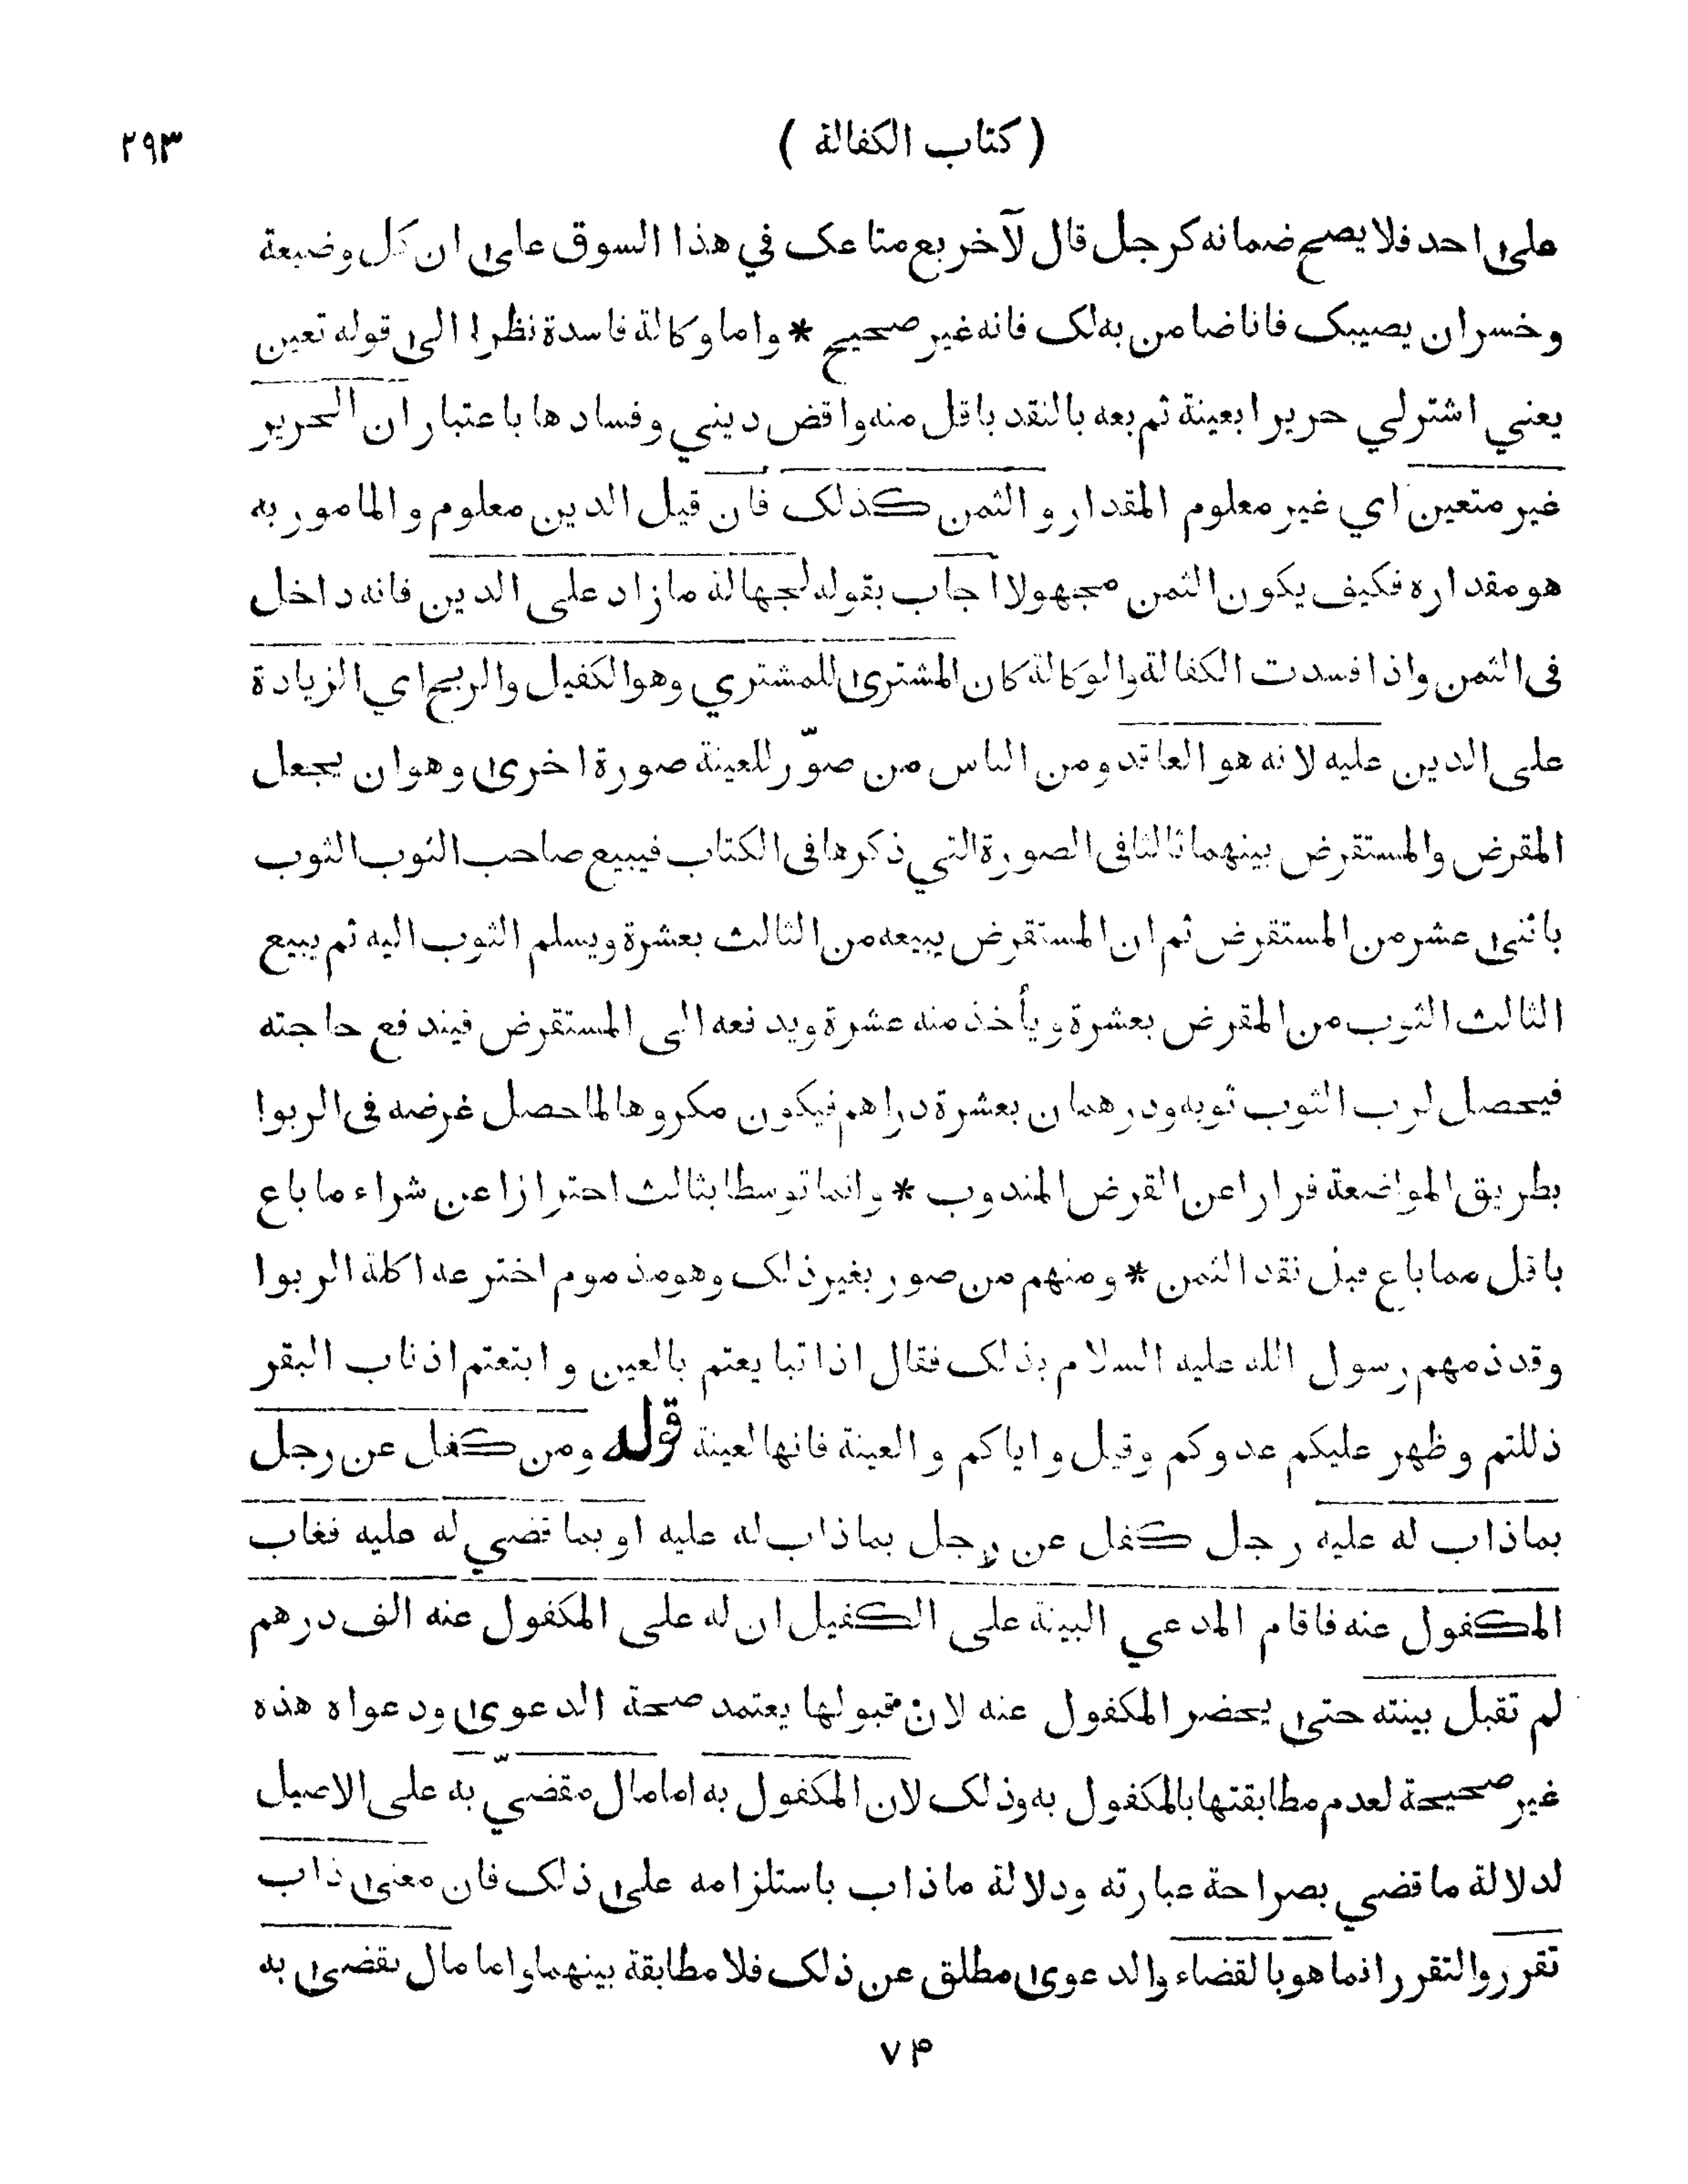 ( كتاب الكفالة ) ٢٩٣
على احد فلا يصح ضمانه كرجل قال لآخر بع متاعك في هذا السوق على ان كل وضيعة
وخسران يصيبك فانا ضامن به لك فانه غير صحيح * واما وكالة فاسدة نظرا الى قوله تعين
يعني اشترلي حريرا بعينة ثم بعه بالنقد باقل منه واقض ديني وفسادها باعتبار ان الحرير
غير متعين اي غير معلوم المقدار والثمن كذلك فان قيل الدين معلوم والمامور به
هو مقداره فكيف يكون الثمن مجهولا اجاب بقوله لجهالة مازاد على الدين فانه داخل
في الثمن واذا فسدت الكفالة والوكالة كان المشترى للمشتري وهو الكفيل والربح اي الزيادة
على الدين عليه لانه هو العاقد ومن الناس من صوّر للعينة صورة اخرى وهو ان يجعل
المقرض والمستقرض بينهما ثالثا في الصورة التي ذكرها في الكتاب فيبيع صاحب الثوب الثوب
باثنى عشر من المستقرض ثم ان المستقرض يبيعه من الثالث بعشرة ويسلم الثوب اليه ثم يبيع
الثالث الثوب من المقرض بعشرة ويأخذ منه عشرة ويدفعه الى المستقرض فيندفع حاجته
فيحصل لرب الثوب ثوبه ودرهمان بعشرة دراهم فيكون مكروها لما حصل غرضه في الربوا
بطريق المواضعة فرارا عن القرض المندوب * وانما توسطا بثالث احترازا عن شراء ما باع
باقل مما باع قبل نقد الثمن * ومنهم من صور بغير ذلك وهو مذموم اخترعه اكلة الربوا
وقد ذمهم رسول الله عليه السلام بذلك فقال اذا تبايعتم بالعين وابتعتم اذناب البقر
ذللتم وظهر عليكم عدوكم وقيل واياكم والعينة فانها لعينة قوله ومن كفل عن رجل
بماذاب له عليه رجل كفل عن رجل بماذاب له عليه او بما قضي له عليه فغاب
المكفول عنه فاقام المدعي البينة على الكفيل ان له على المكفول عنه الف درهم
لم تقبل بينته حتى يحضر المكفول عنه لان قبولها يعتمد صحة الدعوى ودعواه هذه
غير صحيحة لعدم مطابقتها بالمكفول به وذلك لان المكفول به اما مال مقضيّ به على الاصيل
لدلالة ما قضي بصراحة عبارته ودلالة ماذاب باستلزامه على ذلك فان معنى ذاب
تقرر والتقرر انما هو بالقضاء والدعوى مطلق عن ذلك فلا مطابقة بينهما واما مال يقضى به
٧٤